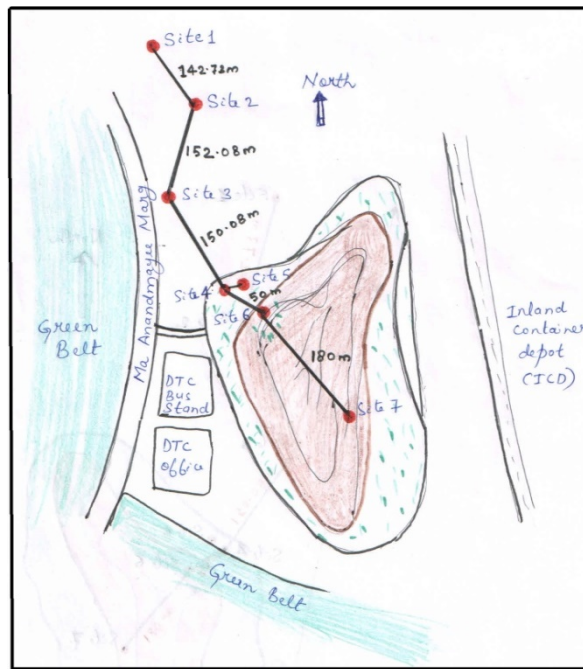 Site 1
142.72m
Site 2
North
152.08m
Site 3
150.08m
Site 4
Site 5
50m
Site 6
180m
Site 7
Ma Anandmayee Marg
Green
Belt
DTC
Bus
Stand
DTC
Office
Inland
container
depot
(ICD)
Green Belt